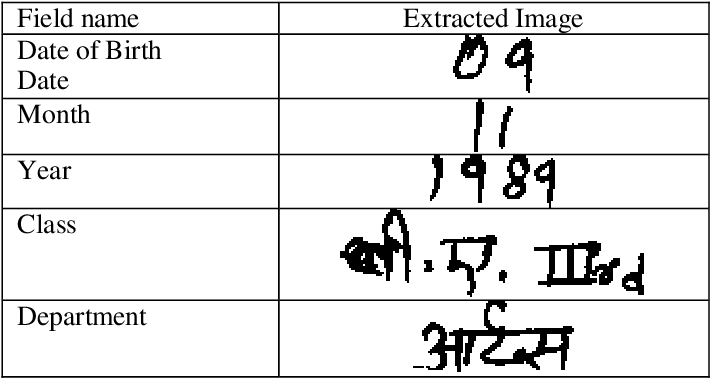 Field name Extracted Image
Date of Birth
Date 09
Month 11
Year 1989
Class बी.ए. IIIrd
Department आर्ट्स